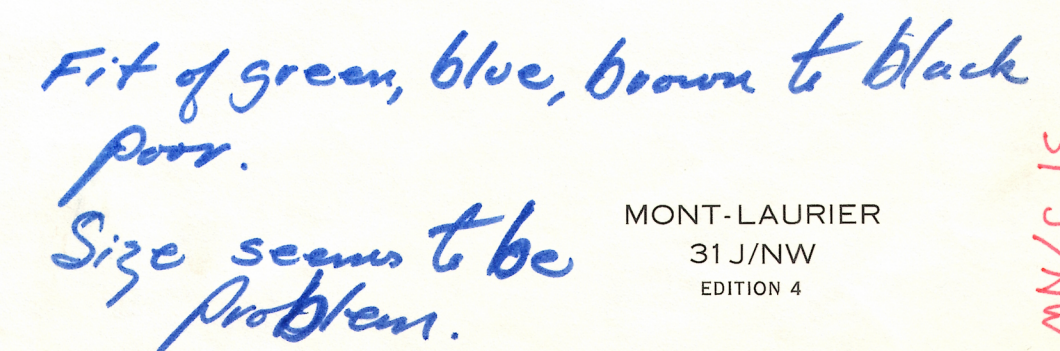 Fit of green, blue, brown to black
poor.
Size seems to be
problem.
MONT-LAURIER
31 J/NW
EDITION 4